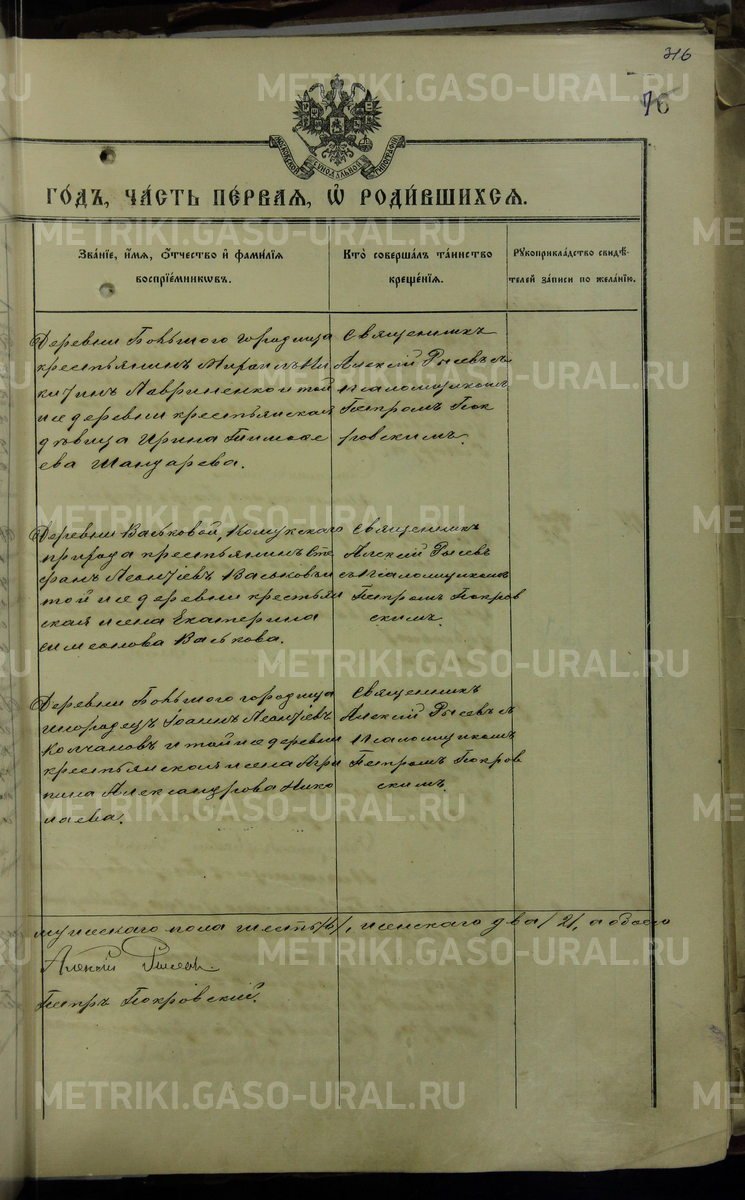 316
76
МОСКОВСКОЙ СѴНОДАЛЬНОЙ ТИПОГРАФІИ
ГО́ДЪ, ЧА́СТЬ ПЕ́РВАЯ, Ѡ РОДИ́ВШИХСЯ.
Зва́нїе, и҆́мя, ѻ҆́тчество и҆ фами́лїя
воспрїе́мникѡвъ.
Кто̀ соверша́лъ та́инство
креще́нїя.
Рꙋкоприкла́дство свидѣ́-
телей за́писи по жела́нїю.
Деревни Большого городища
крестьянинъ Михаилъ Ни
китинъ Лавриненко и той
же деревни крестьянская
дѣвица Ирина Тимофе
ева Шандарева.
Священникъ
Алексій Рысевъ съ
псаломщикомъ
Петромъ Пок
ровскимъ.
Деревни Васьковой, Кошукского
прихода крестьянинъ Сте
фанъ Леонтіевъ Васьковъ и
той же деревни крестьян
ская жена Екатерина
Симеонова Васькова.
Священникъ
Алексій Рысевъ
съ псаломщикомъ
Петромъ Покров
скимъ.
Деревни Большого городища
инородецъ Іоаннъ Леонтіевъ
Колчановъ и той же деревни
крестьянская жена Агри
пина Александрова Нико
лаева.
Священникъ
Алексій Рысевъ съ
псаломщикомъ
Петромъ Покров
скимъ.
мужескаго пола шесть /6/, женскаго два /2/, а обоего
Алексій Рысевъ.
Петръ Покровскій.
METRIKI.GASO-URAL.RU